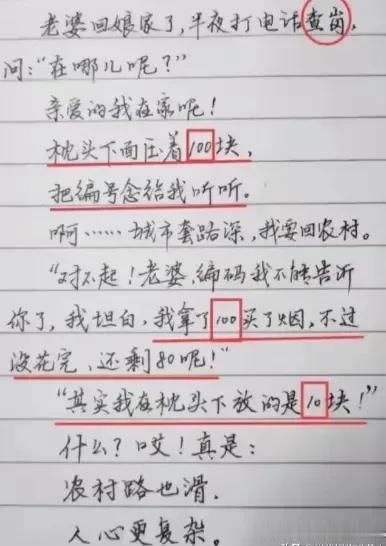 老婆回娘家了,半夜打电话查岗,
问:“在哪儿呢?”
亲爱的我在家呢!
枕头下面压着100块,
把编号念给我听听。
啊……城市套路深,我要回农村。
“对不起!老婆,编码我不能告诉
你了,我坦白,我拿了100买了烟,不过
没花完、还剩80呢!”
“其实我在枕头下放的是10块!”
什么?哎!真是:
农村路也滑.
人心更复杂。